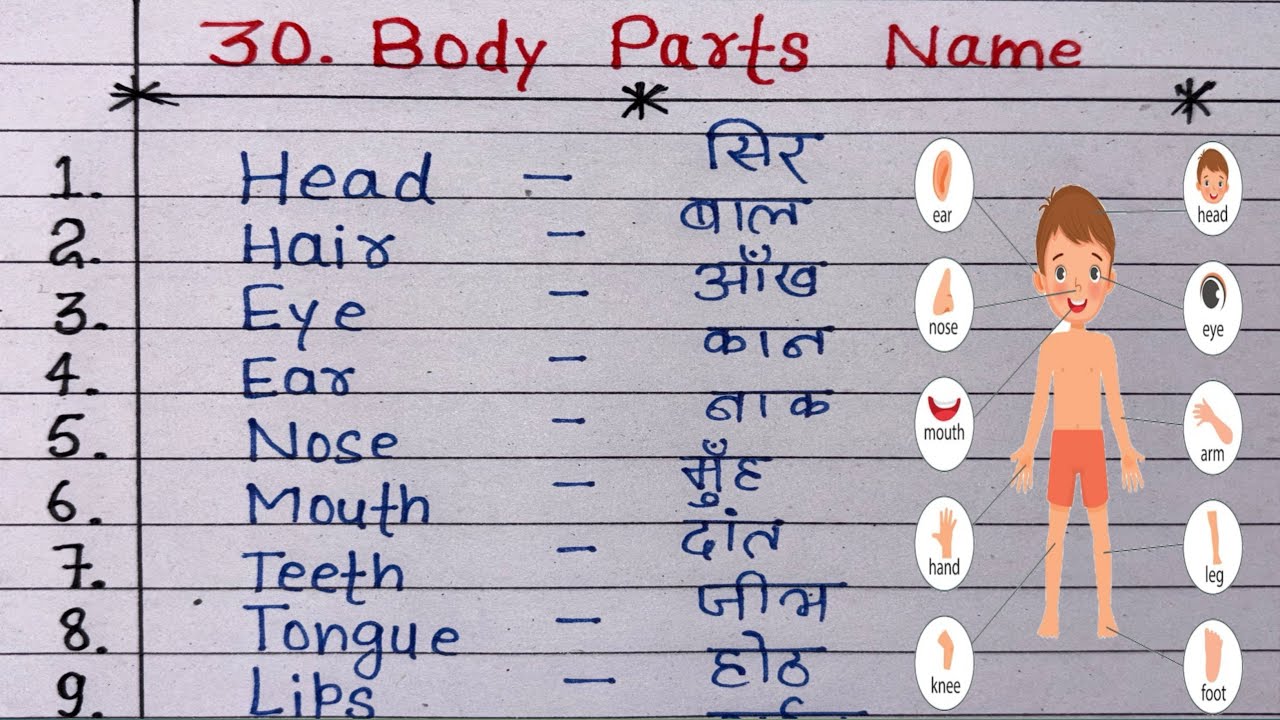 30. Body Parts Name
1. Head - सिर
2. Hair - बाल
3. Eye - आँख
4. Ear - कान
5. Nose - नाक
6. Mouth - मुँह
7. Teeth - दांत
8. Tongue - जीभ
9. Lips - होठ
ear
head
nose
eye
mouth
arm
hand
leg
knee
foot